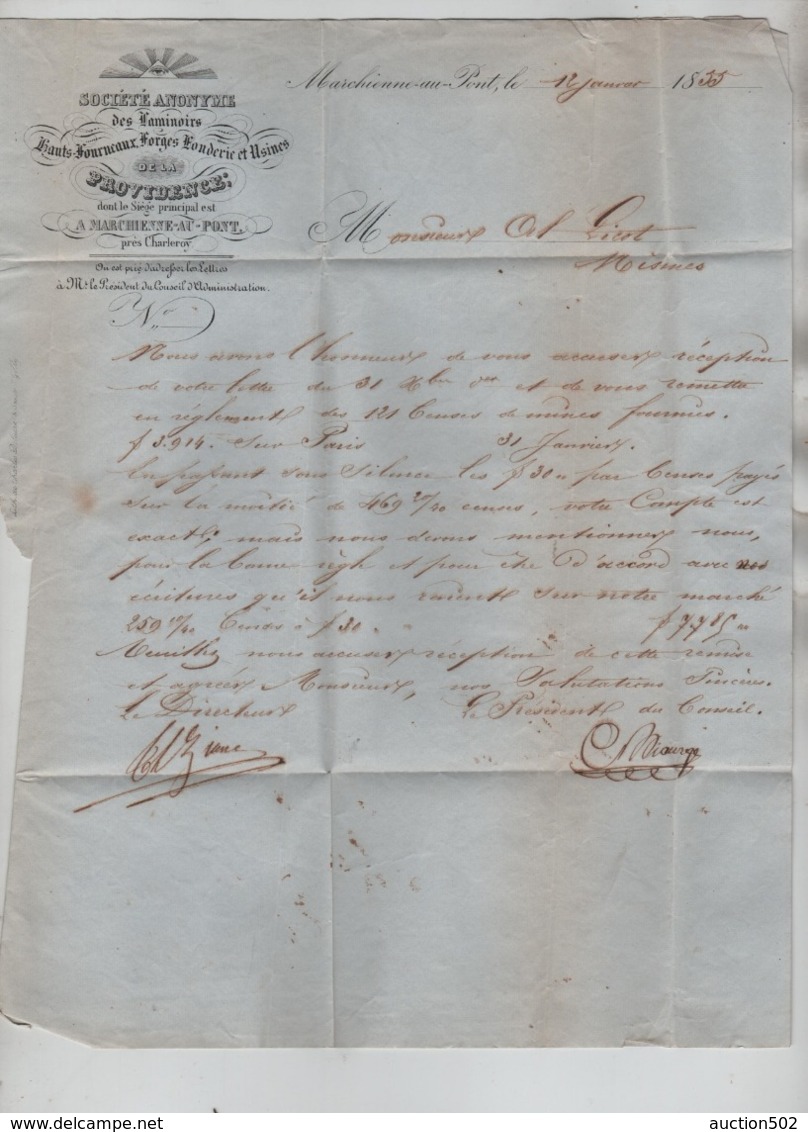 SOCIÉTÉ ANONYME
des Laminoirs
Hauts-Fourneaux, Forges Fonderie et Usines
DE LA
PROVIDENCE,
dont le Siège principal est
A MARCHIENNE-AU-PONT.
près Charleroy.
On est prié d'adresser les Lettres
à Mr. le Président du Conseil d'Administration.
No.
Marchienne-au-Pont, le 12 janvier 1855
Monsieur Licot
Nismes
Nous avons l'honneur de vous accuser réception
de votre lettre du 31 Xbre et de vous remettre
en règlement des 121 Censes de mines fournies.
f 3.914. sur Paris 31 Janvier.
En passant sous silence les f 30 par Censes payés
sur la moitié de 469 20/40 censes, votre Compte est
exact; mais nous devons mentionner nous,
pour la bonne et pour être d'accord avec nos
écritures qu'il nous revient sur notre marché
259 Censes à f 30. f 7,785
Veuillez nous accuser réception de cette remise
et agréer Monsieur, nos Salutations Sincères.
Le Directeur Le Président du Conseil.
auction502